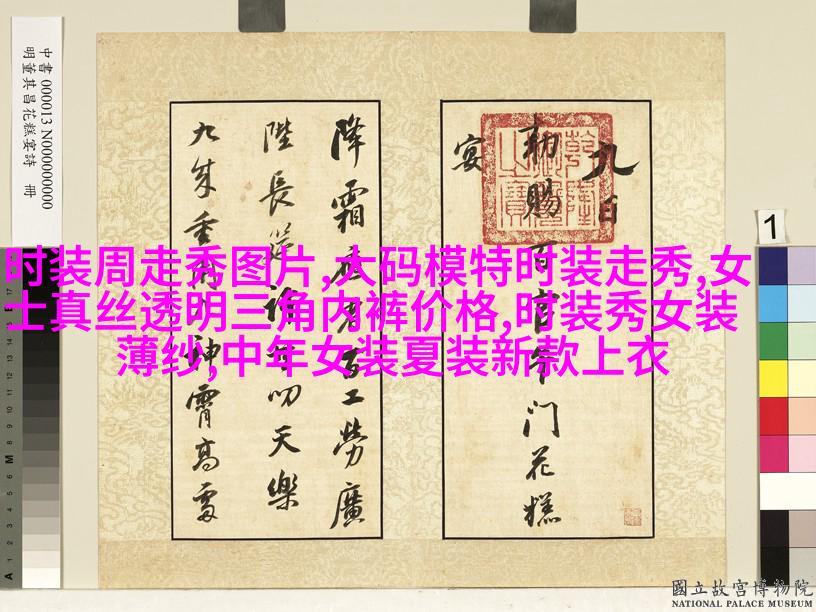 中書 000013 N000000000
明董其昌花糕宴詩 冊
九日
勅賜百官午門花糕
宴
降霜 百工勞廣
陛長筵 天樂
九成重 神霄高
时装周走秀图片,大码模特时装走秀,女
士真丝透明三角内裤价格,时装秀女装
薄纱,中年女装夏装新款上衣
1
國立故宮博物院
NATIONAL PALACE MUSEUM